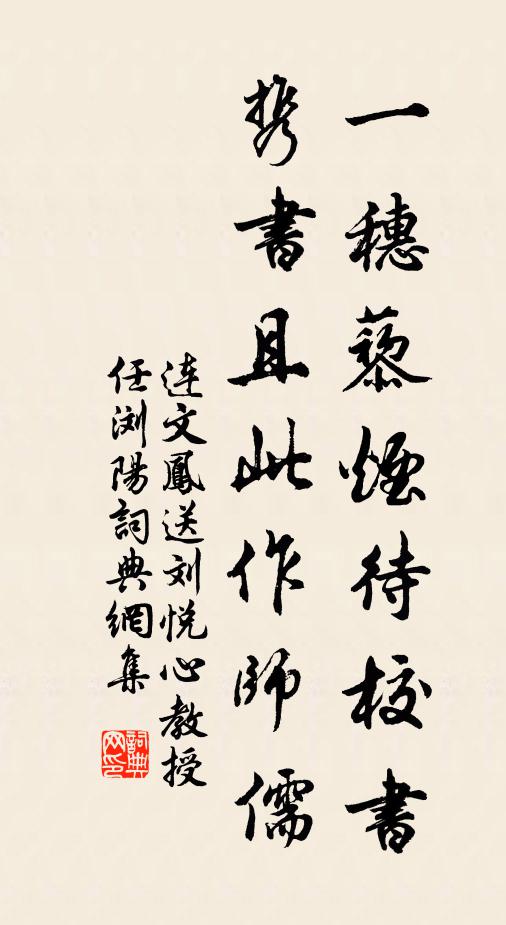 一穗藜煙待校書
携書且此作師儒
连文鳳送刘悦心教授
任浏陽詞典網集
詞典网印